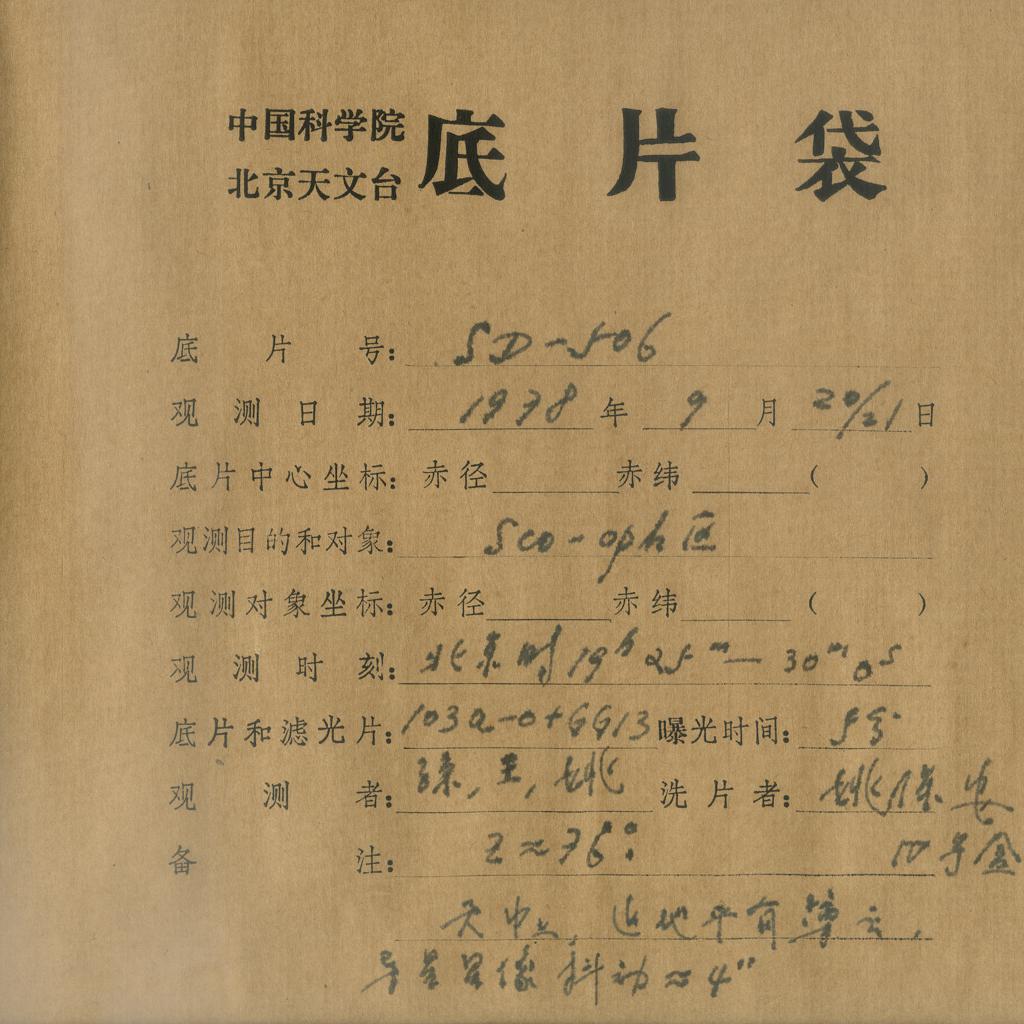 中国科学院
北京天文台
底片袋
底片号： SD-506
观测日期： 1978 年 9 月 20/21 日
底片中心坐标：赤径 赤纬 （ ）
观测目的和对象： Sco-oph 区
观测对象坐标：赤径 赤纬 （ ）
观测时刻：北京时19h25m—30m0s
底片和滤光片：103a-0+GG13 曝光时间：5分
观测者： 陈,王,姚 洗片者：姚保安
备注： Z≈76°
天中上,近地平有薄云,
导星星像抖动≈4"